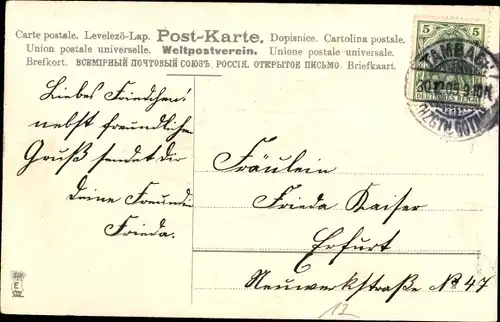 Carte postale. Levelezö-Lap. Post-Karte. Dopisnice. Cartolina postale.
Union postale universelle. Weltpostverein. Unione postale universale.
Brefkort. ВСЕМІРНЫЙ ПОЧТОВЫЙ СОЮЗЪ. РОССІЯ. ОТКРЫТОЕ ПИСЬМО. Briefkaart.
5 5
DEUTSCHES REICH
TAMBACH
30.12.05.9-10V.
Liebes Friedchen!
nebst freundlichen
Gruß sendet dir
deine Freundin
Frieda.
Fräulein
Frieda Kaiser
Erfurt
Neuwerkstraße No 47
12
E